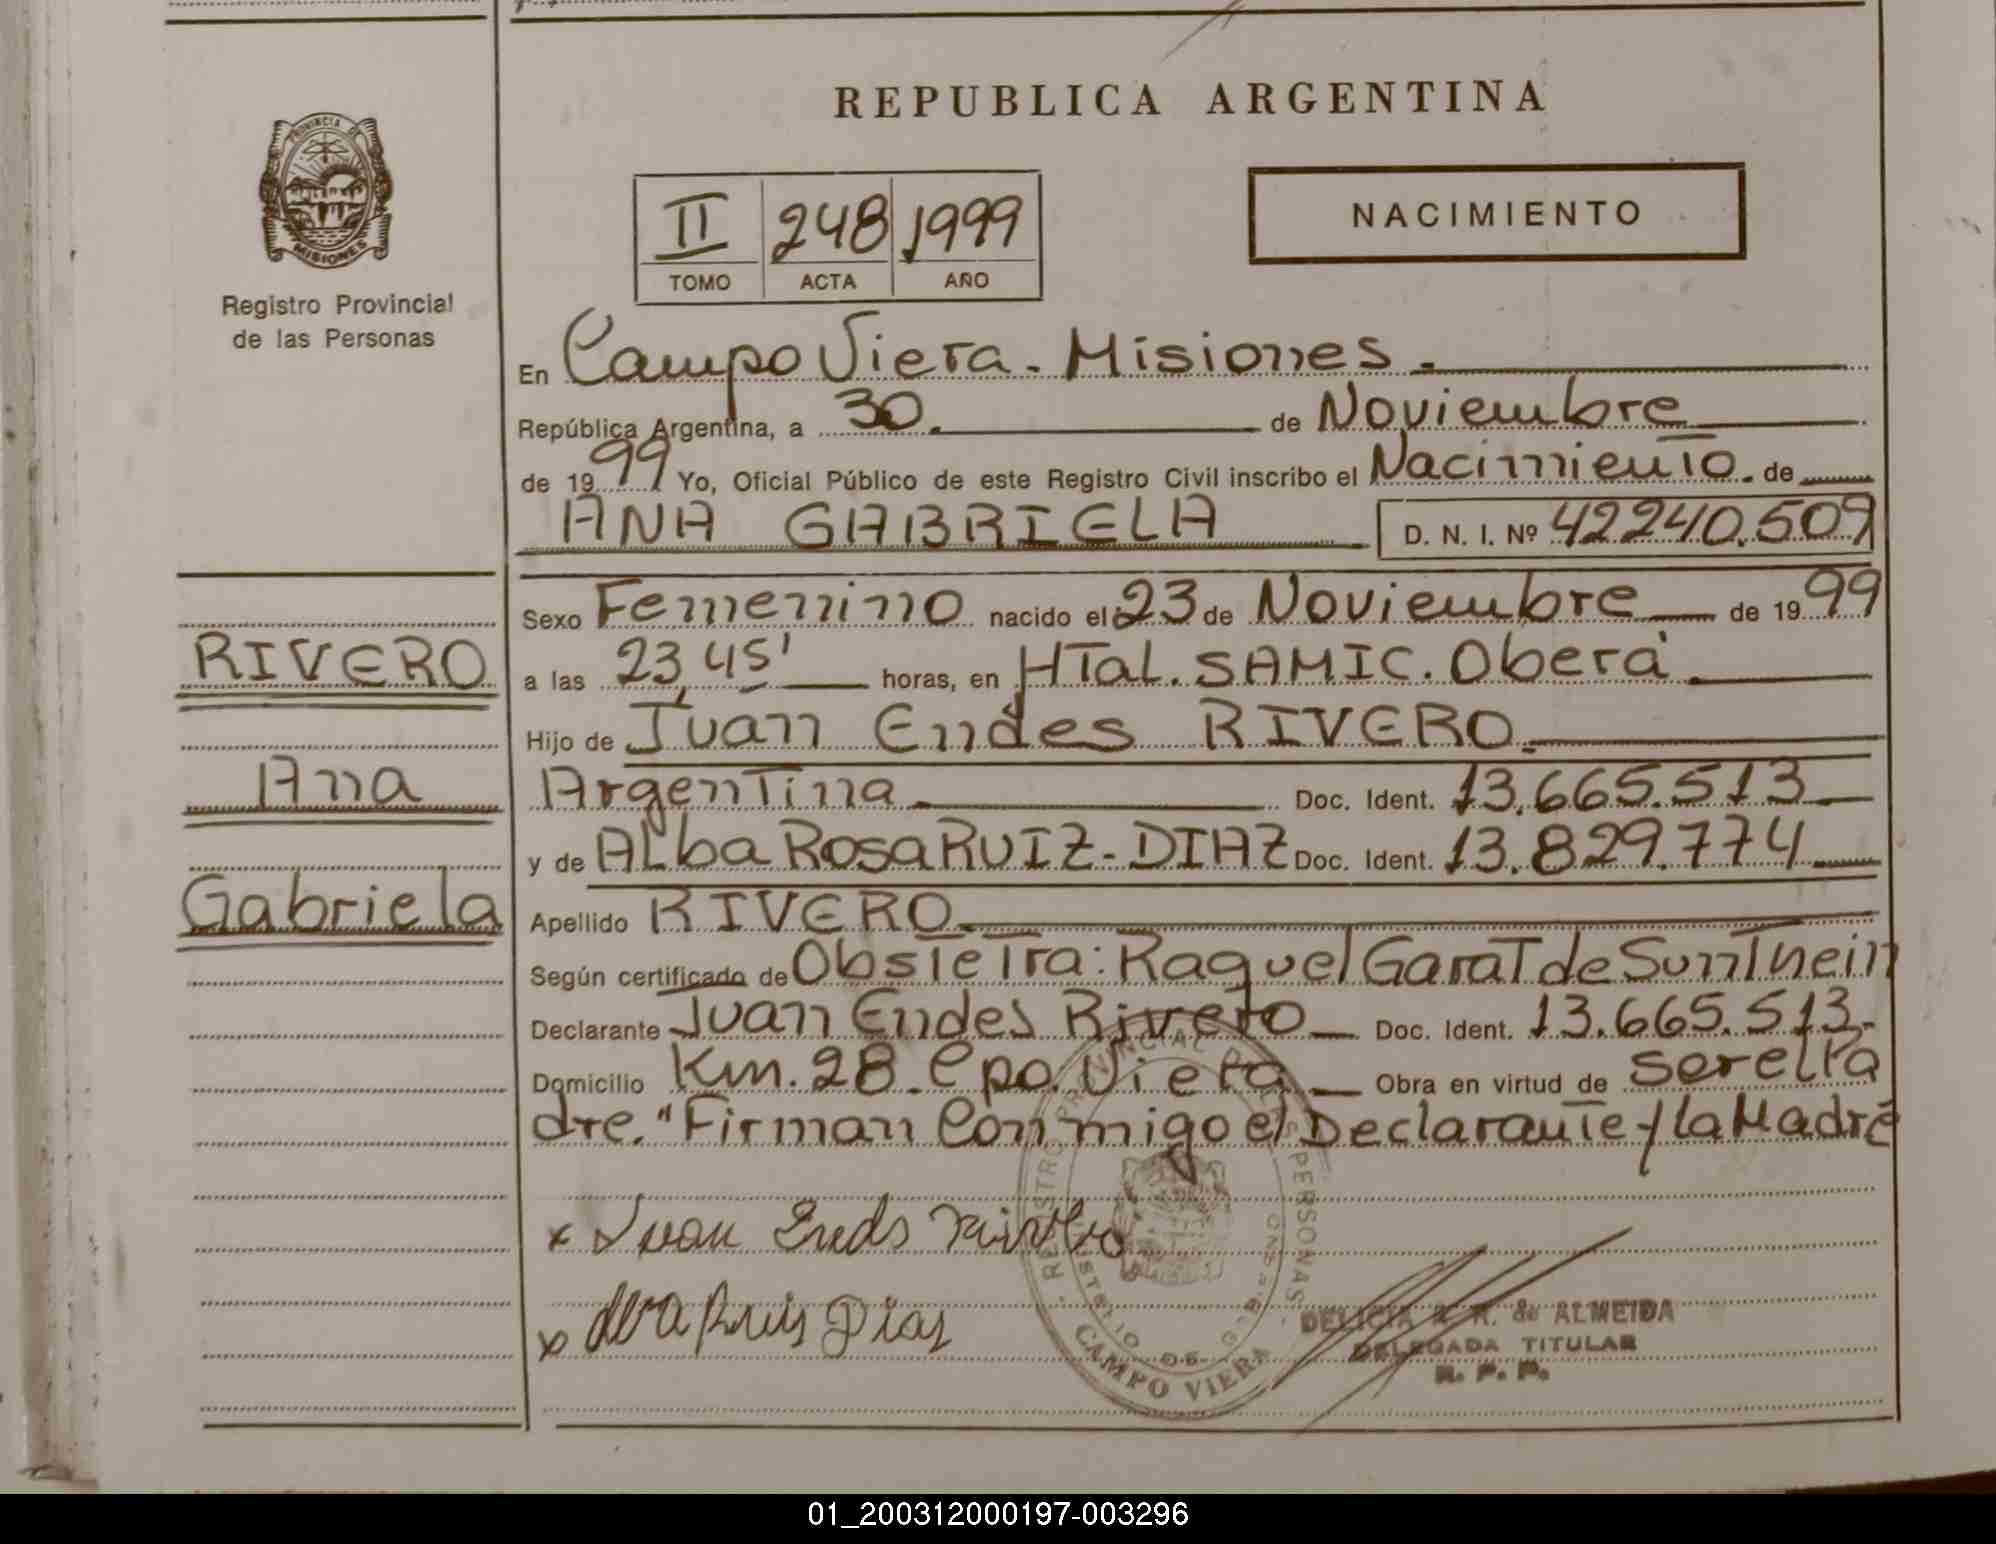 REPUBLICA ARGENTINA
PROVINCIA DE
MISIONES
Registro Provincial
de las Personas
NACIMIENTO
II 248 1999
TOMO ACTA AÑO
En Campo Viera - Misiones.
República Argentina, a 30. de Noviembre
de 1999 Yo, Oficial Público de este Registro Civil inscribo el Nacimiento. de
ANA GABRIELA D. N. I. Nº 42240.509
RIVERO
Ana
Gabriela
Sexo Femenino nacido el 23 de Noviembre de 1999
a las 23,45' horas, en HTal. SAMIC. Oberá
Hijo de Juan Endes RIVERO.
Argentina Doc. Ident. 13.665.513
y de ALba Rosa RUIZ-DIAZ Doc. Ident. 13.829.774
Apellido RIVERO
Según certificado de Obstetra: Raquel Garat de Sunthein
Declarante Juan Endes Rivero Doc. Ident. 13.665.513-
Domicilio Km. 28. Cpo. Viera Obra en virtud de ser el Pa
dre." Firman Conmigo el Declarante y la Madre
x Juan Endes Rivero
x Alva Ruis Diaz
REGISTRO PROVINCIAL DE LAS PERSONAS
CAMPO VIERA
DELICIA R. de ALMEIDA
DELEGADA TITULAR
R. P. P.
01_200312000197-003296